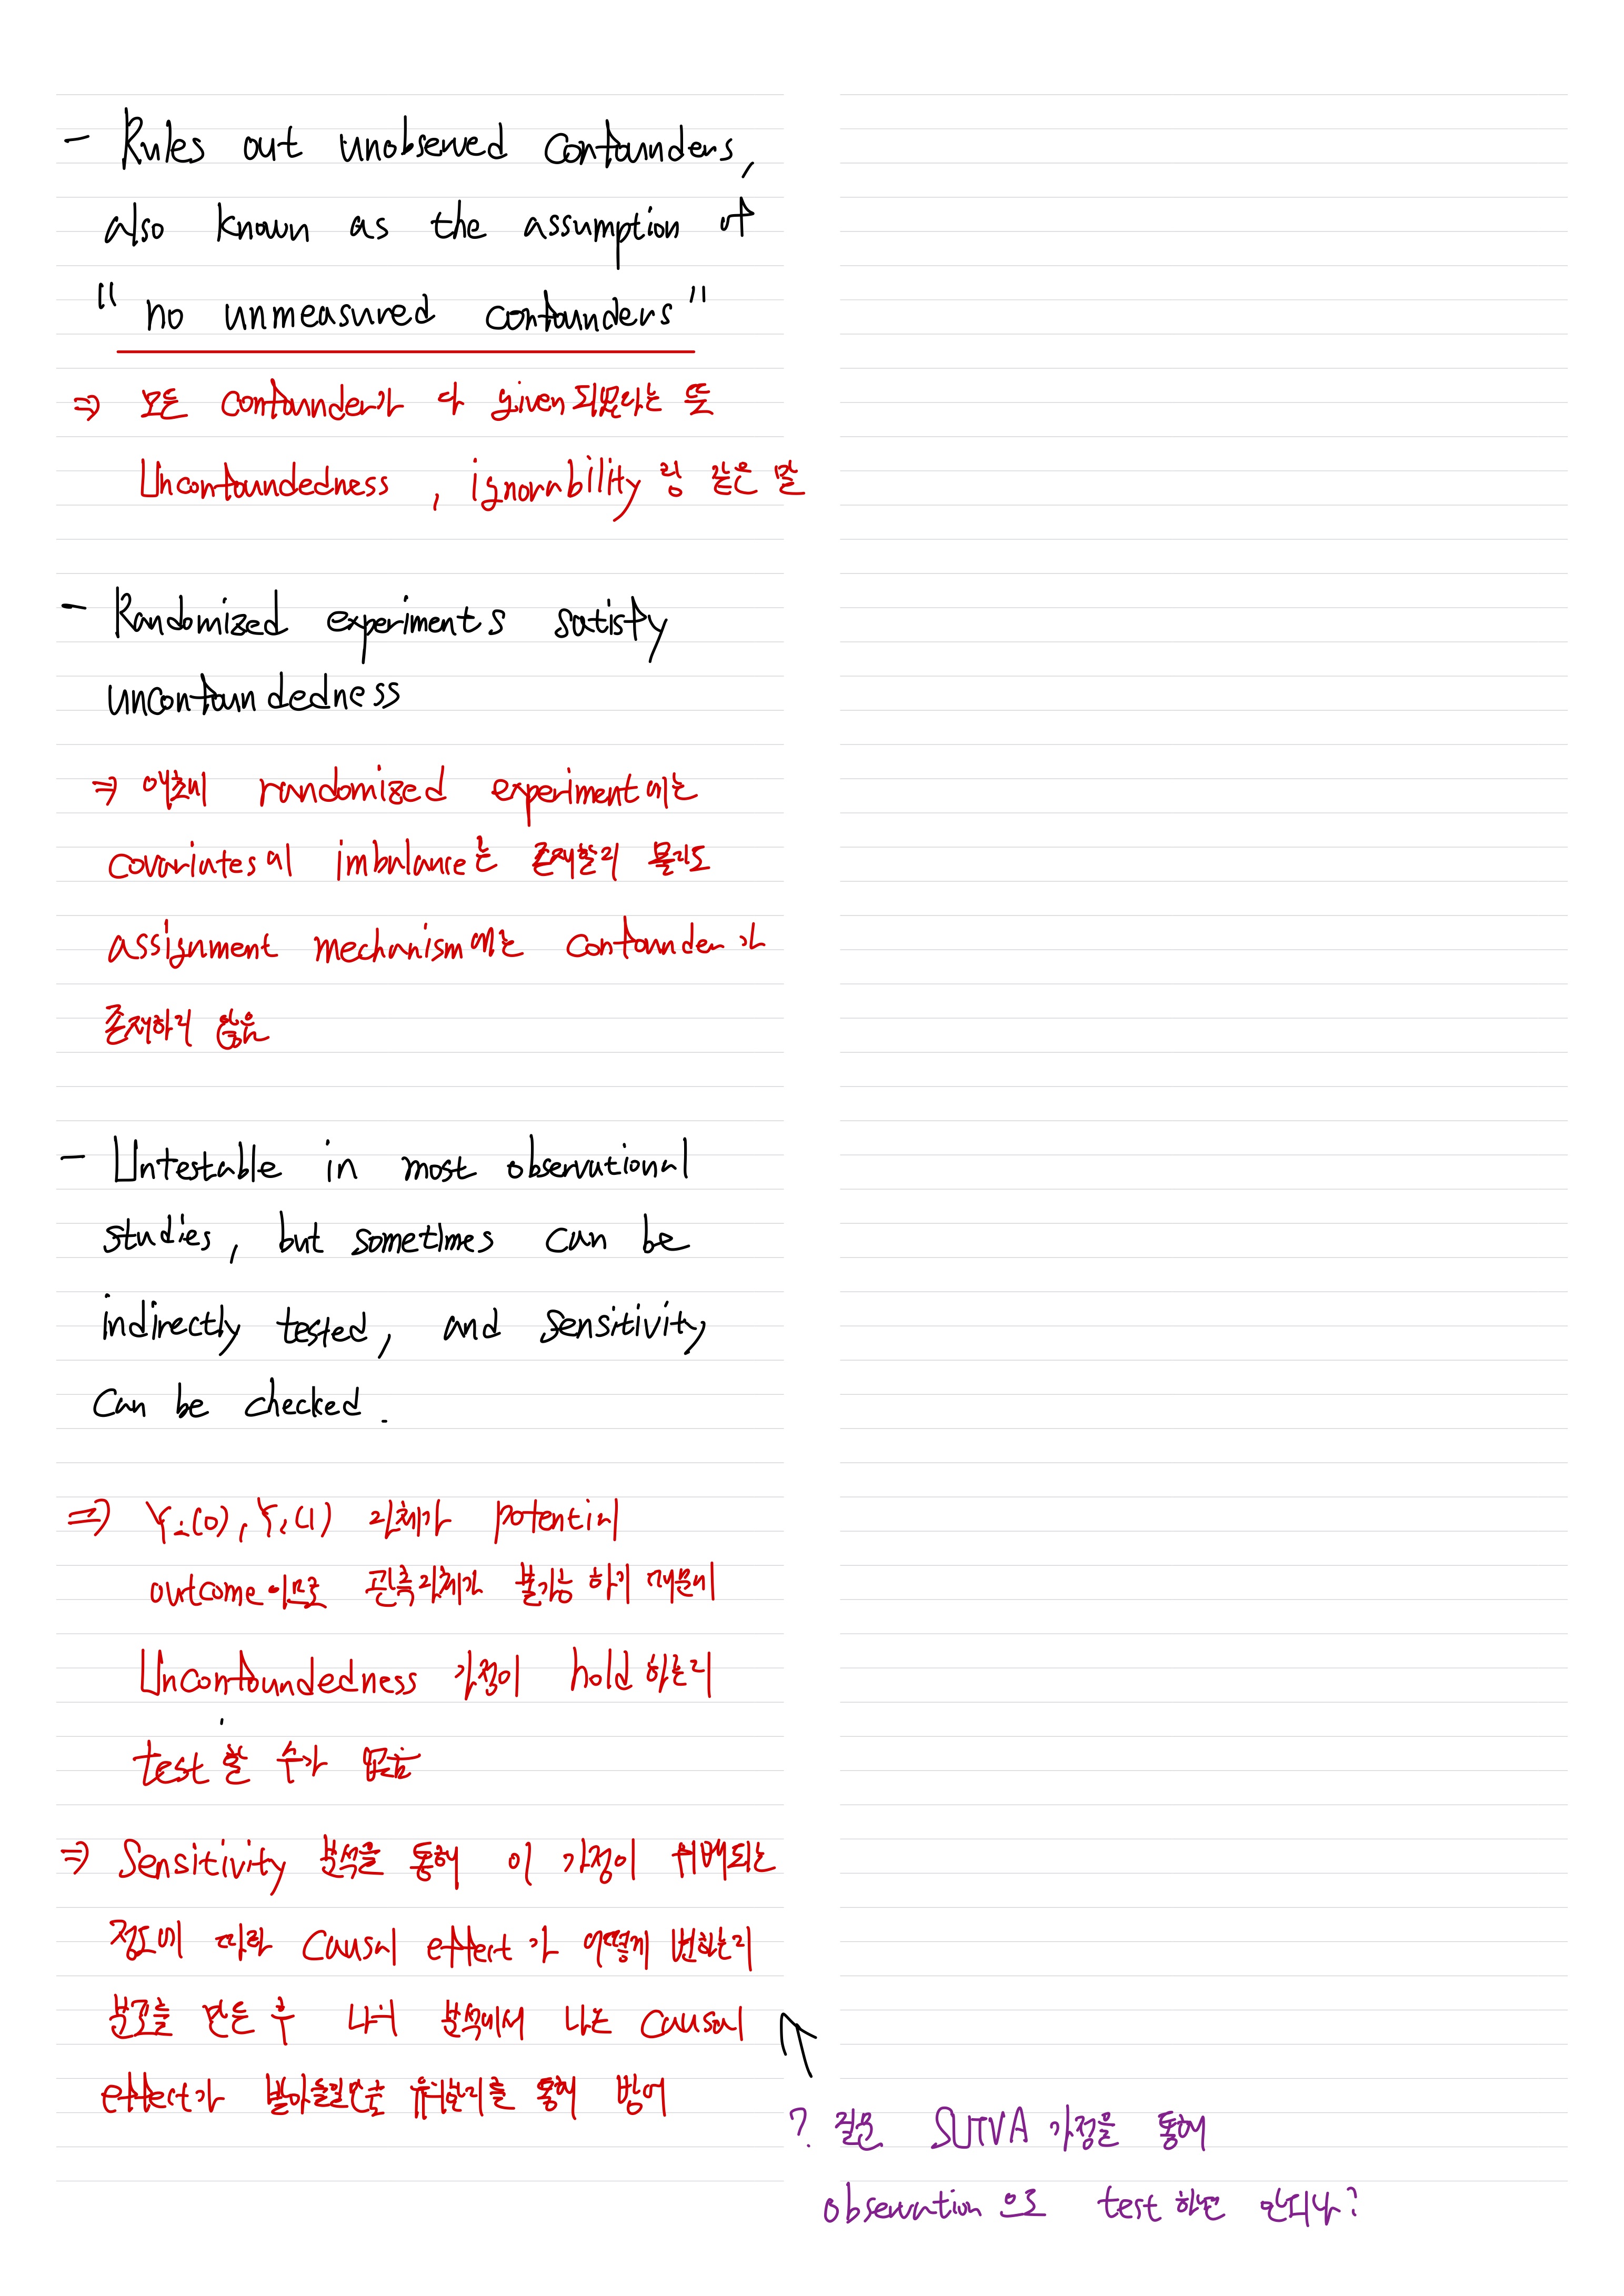 - Rules out unobserved confounders,
also known as the assumption of
"no unmeasured confounders"
⇒ 모든 confounder가 다 given 되었다는 뜻
Unconfoundedness, ignorability 랑 같은 말
- Randomized experiments satisfy
unconfoundedness
⇒ 애초에 randomized experiment에는
covariates의 imbalance는 존재할지 몰라도
assignment mechanism에는 confounder가
존재하지 않음
- Untestable in most observational
studies, but sometimes can be
indirectly tested, and sensitivity
can be checked.
⇒ Yi(0), Yi(1) 자체가 potential
outcome이므로 관측자체가 불가능 하기 때문에
Unconfoundedness 가정이 hold 하는지
test 할 수가 없음
⇒ Sensitivity 분석을 통해 이 가정이 위배되는
정도에 따라 causal effect가 어떻게 변하는지
분포를 만든 후 나의 분석에서 나온 causal
effect가 받아들일만큼 유의한지를 통해 방어
↑
? 질문 SUTVA 가정을 통해
observation으로 test 하면 안되나?